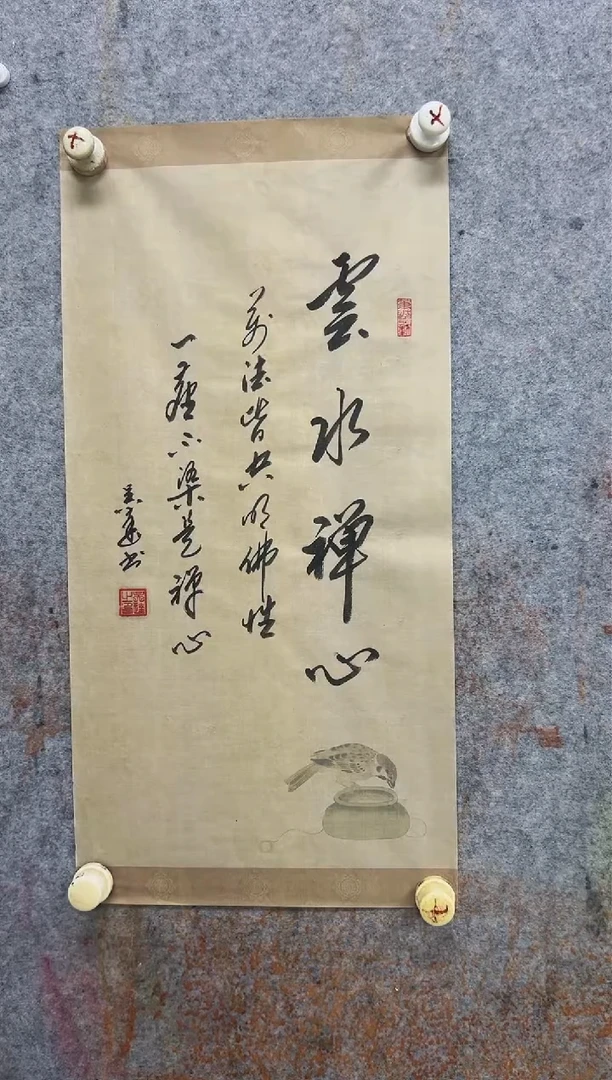 雲水禪心
萬法皆共明佛性
一塵不染是禪心
書